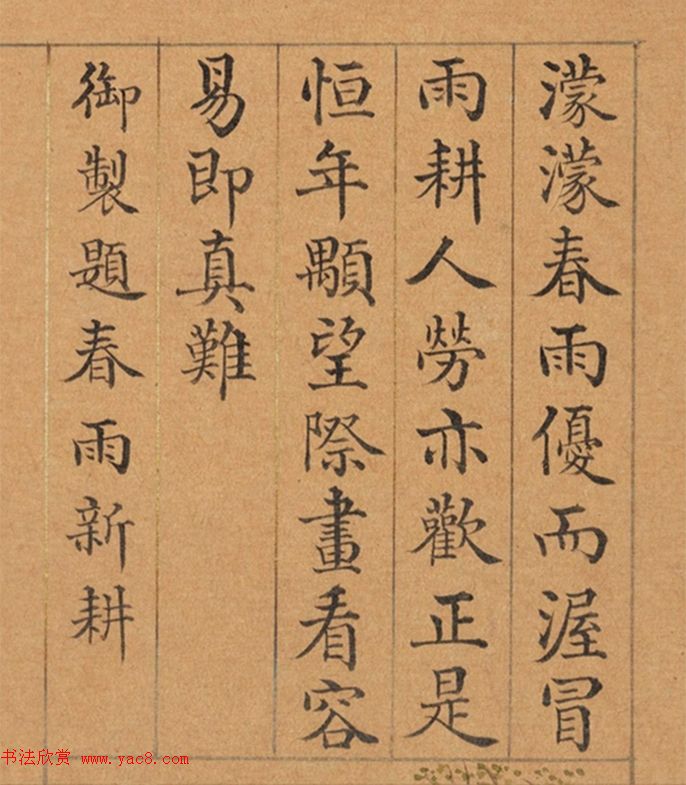 濛濛春雨優而渥冒
雨耕人勞亦歡正是
恒年顒望際畫看容
易即真難
御製題春雨新耕
书法欣赏 www.yac8.com